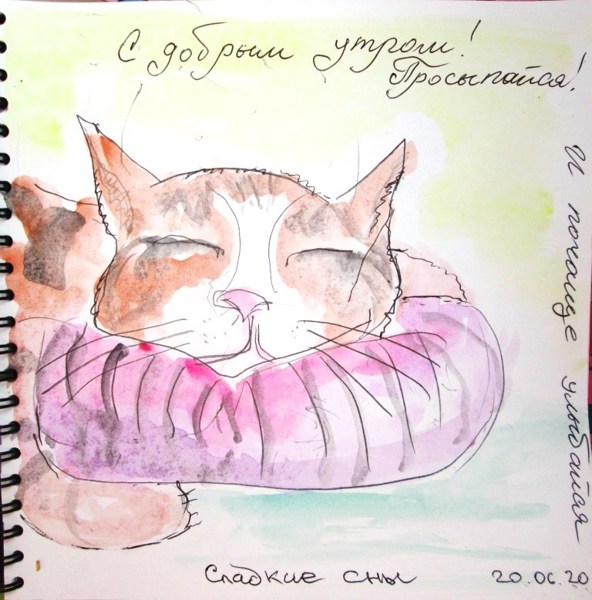 С добрым утром!
Просыпайся!
И почаще улыбайся
Сладкие сны
20.06.20